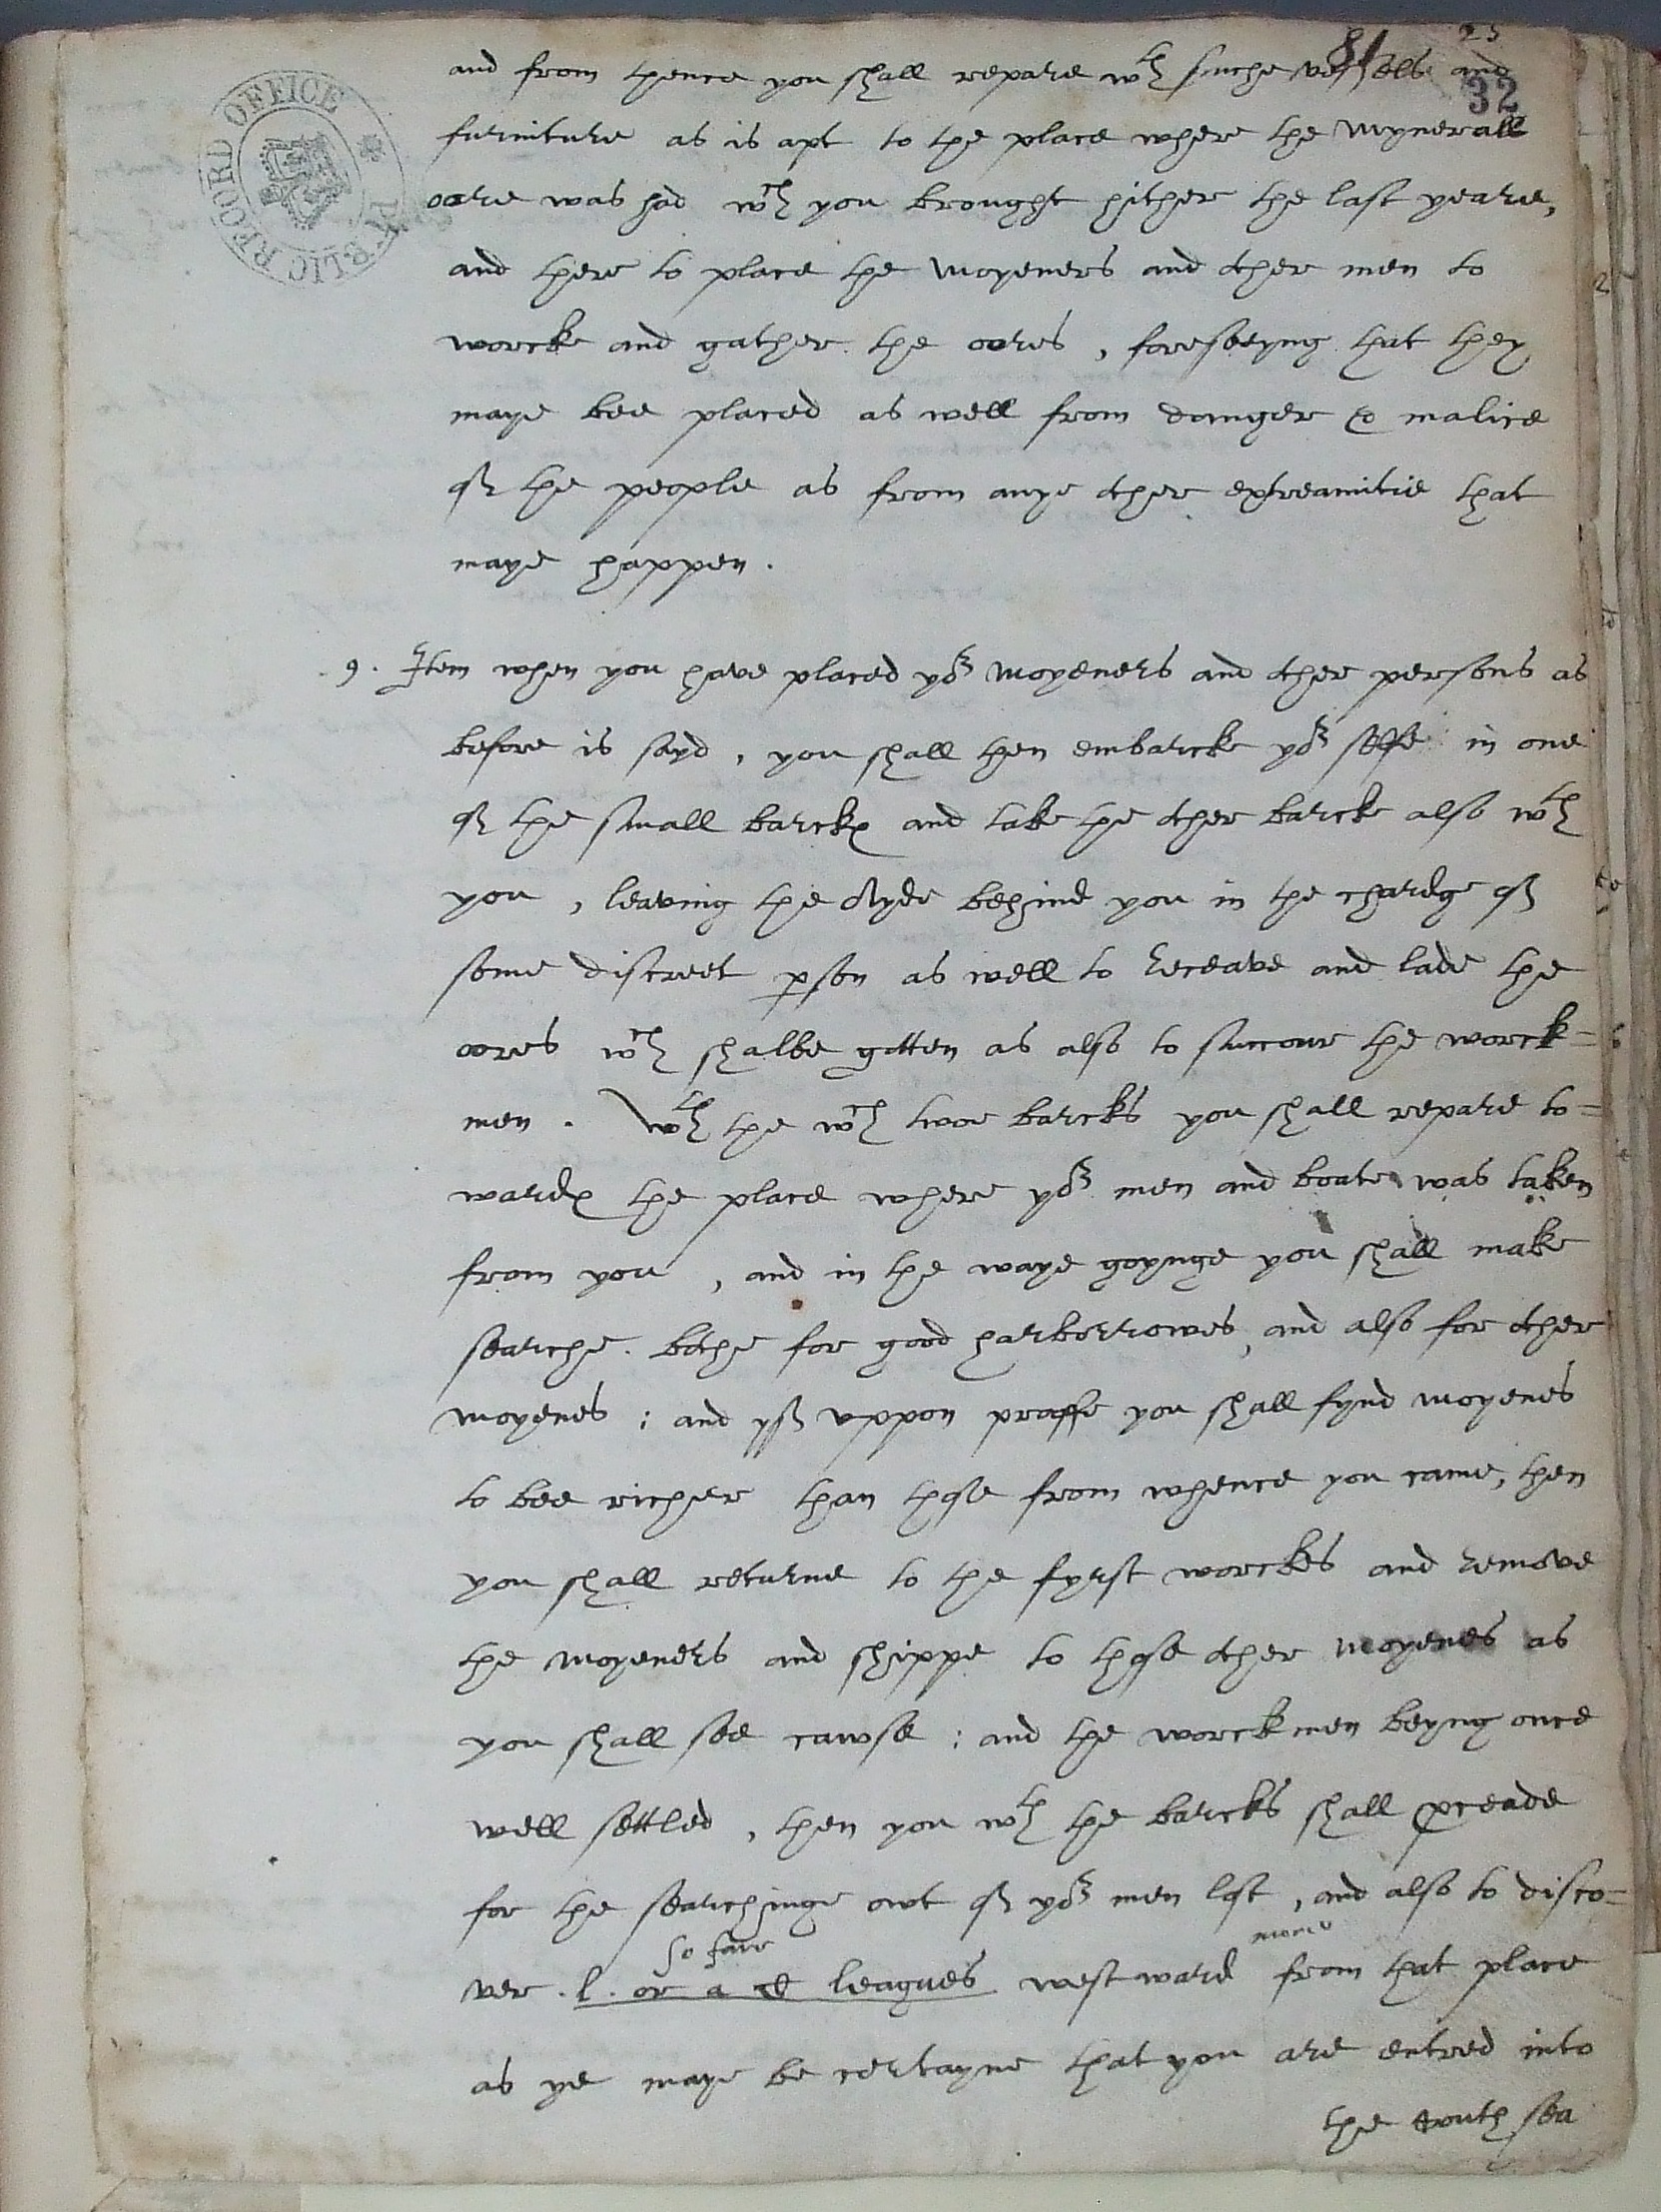 25
81
32
PUBLIC RECORD OFFICE
and from thence you shall repare wth suche vessells and
furniture as is apt to the place where the Mynerall
oare was had wch you brought hither the last yeare,
and there to place the Moyeners and other men to
worcke and gather the oores, foreseeyng that they
maye bee placed as well from daunger & malice
of the people as from anye other extreamitie that
maye happen.
9. Item when you have placed yor Moyeners and other persons as
before is sayd, you shall then embarcke yor selfe in one
of the small barckes and take the other barcke also wth
you, leaving the Ayde behind you in the chardge of
some discreet pson as well to receave and lade the
oores wch shalbe gotten as also to succour the worck=
men. Wth the wch twoe barcks you shall repare to=
wardes the place where yor men and boate was taken
from you, and in the waye goynge you shall make
searche bothe for good harborrowes, and also for other
moyenes; and yf vppon prooffe you shall fynd moyenes
to bee richer than those from whence you came, then
you shall returne to the fyrst worckes and remove
the moyeners and shippe to those other moyenes as
you shall see cawse: and the worckmen beyng once
well settled, then you wth the barcks shall pceade
for the searchinge owt of yor men lost, and also to disco=
so farre
more
ver .l. or a C leagues westward from that place
as ye maye be certayne that you are entred into
the South sea